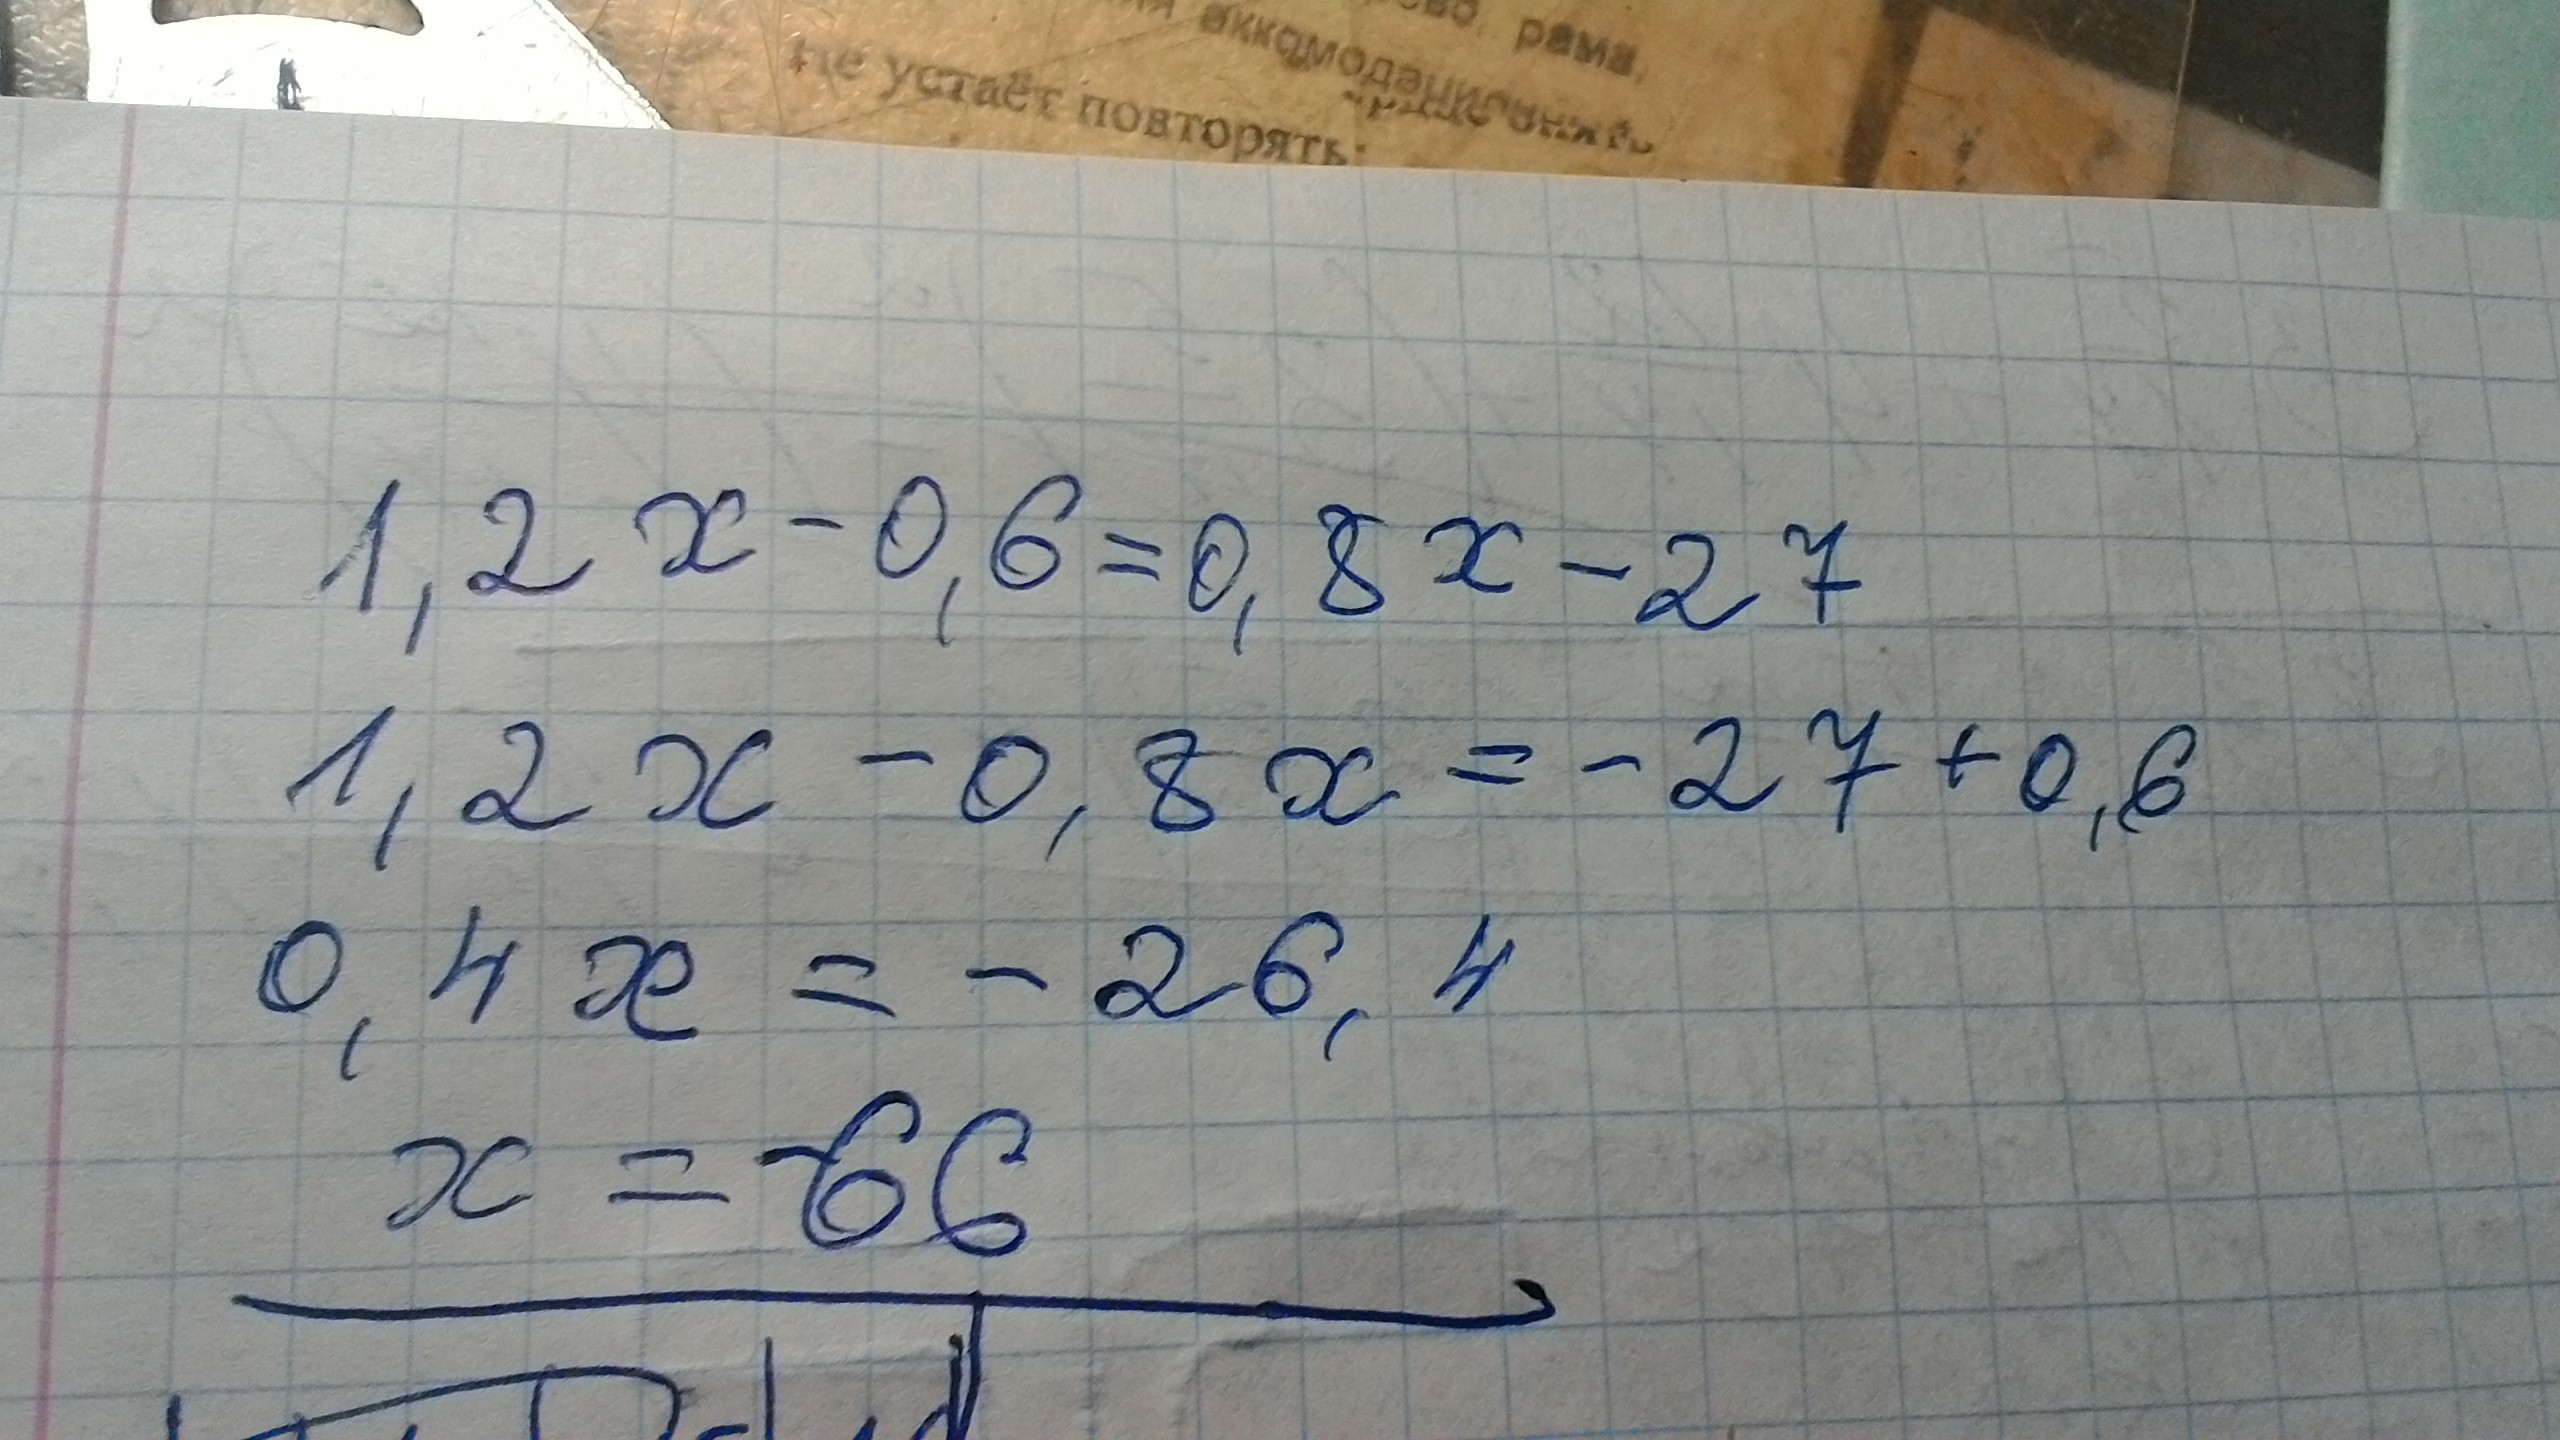 рама,
аккомодационн
Не устаёт повторять:
1,2x-0,6=0,8x-27
1,2x-0,8x=-27+0,6
0,4x=-26,4
x=-66